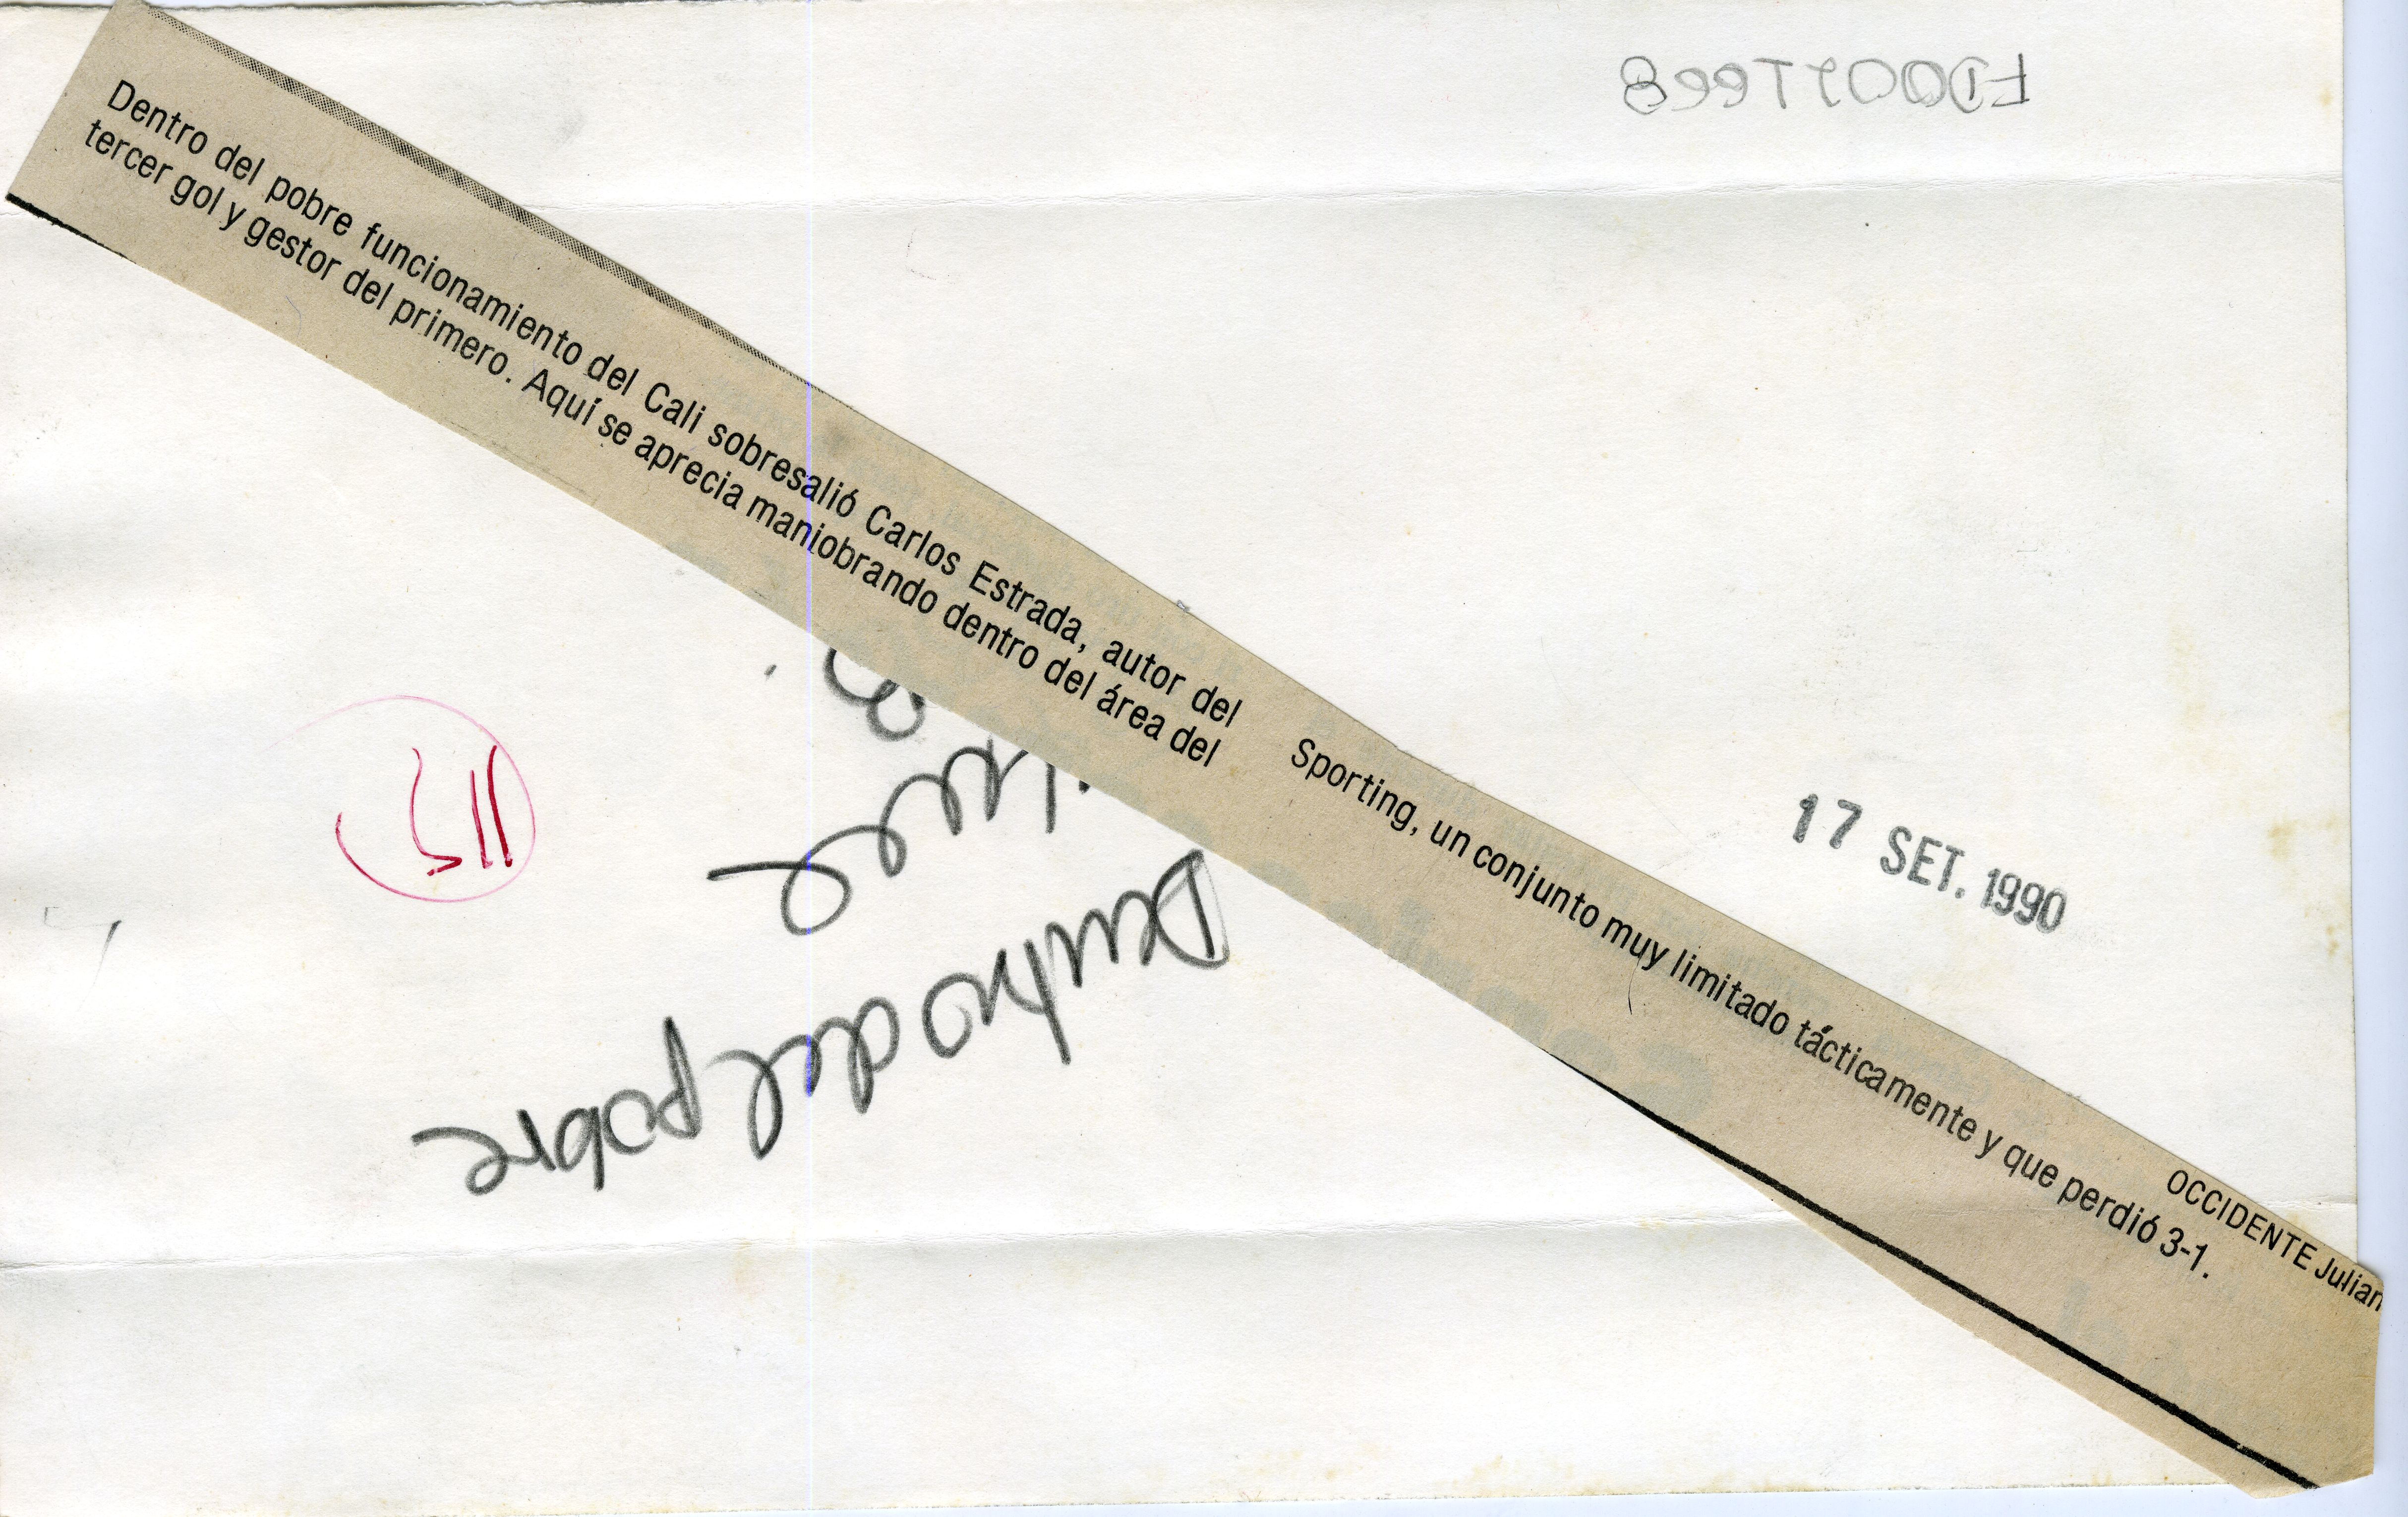 Dentro del pobre funcionamiento del Cali sobresalió Carlos Estrada, autor del
tercer gol y gestor del primero. Aquí se aprecia maniobrando dentro del área del
Sporting, un conjunto muy limitado tácticamente y que perdió 3-1.
OCCIDENTE Julian
17 SET. 1990
115
Dentro del pobre